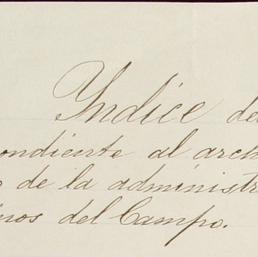 Yndice de
ondiente al arch
de la administr
nos del Campo.